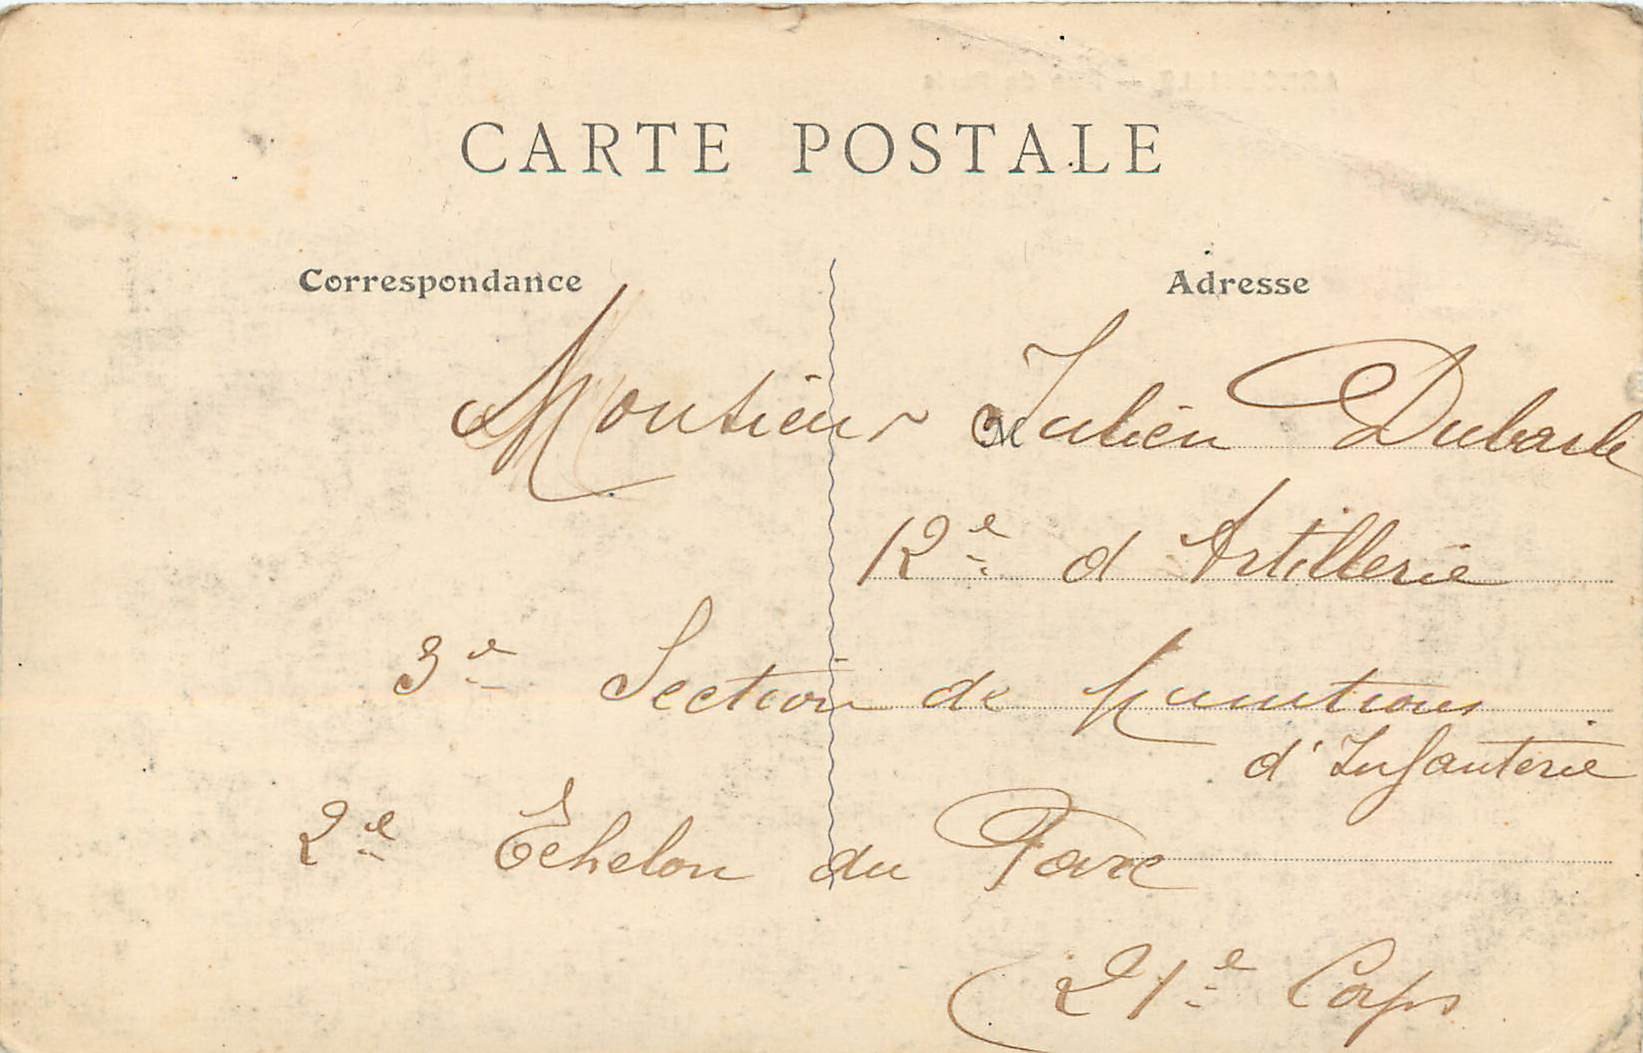 CARTE POSTALE
Correspondance
Adresse
Monsieur Julien Dubarle
12e d'Artillerie
3e Section de Munitions
d'Infanterie
2e Echelon du Parc
21e Corps